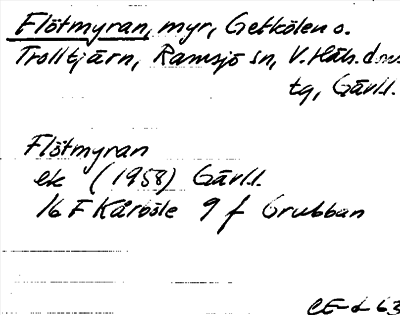 Flötmyran, myr, Getkölen o.
Trolltjärn, Ramsjö sn, V. Häls. doms
tg, Gävl.l.
Flötmyran
ek (1958) Gävl.l.
16 F Kårböle 9 f Grubban
CE-d 63